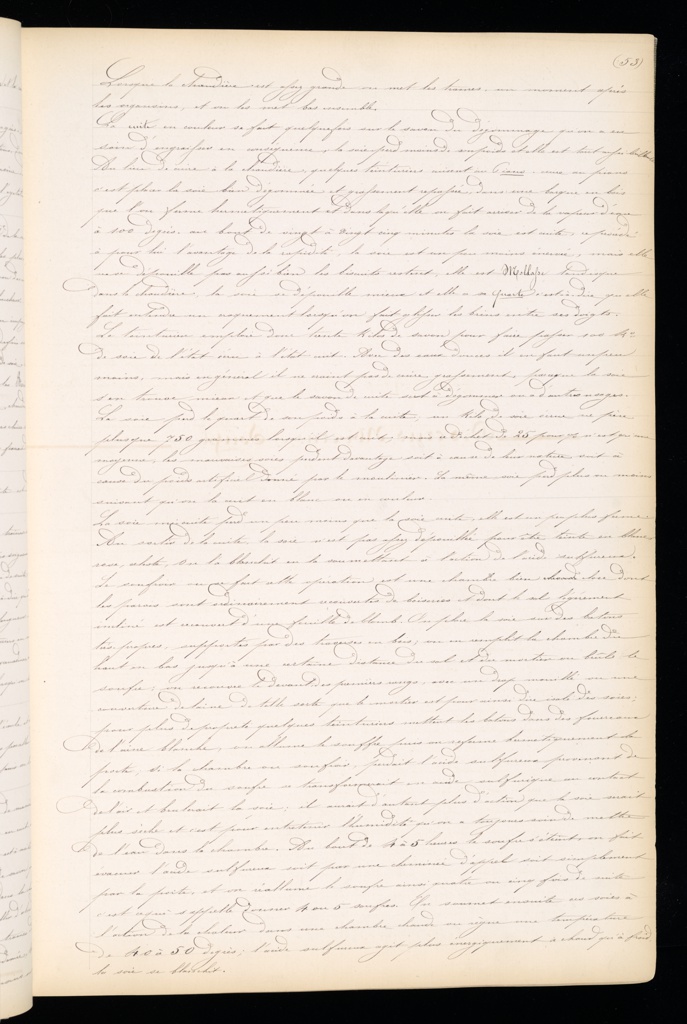 (53)
Lorsque la chaudière est assez grande on met les trames, un moment après
les organsins, et on les met bas ensemble.
La cuite en couleur se fait quelquefois sur le savon du dégommage qu'on a eu
soin d'engraisser en conséquence, la soie perd moins de
Au lieu de cuire à la chaudière, quelques teinturiers cuisent au
c'est placer la soie bien dégommée et grassement repassée dans une barque en bois
que l'on ferme hermétiquement et dans laquelle on fait arriver de la vapeur d'eau
à 100 degrés. au bout de vingt à vingt cinq minutes la soie est cuite, ce procédé
a pour lui l'avantage de la rapidité, la soie est un peu moins énervée, mais elle
ne se débouille pas aussi bien les bouts restent, elle est Mollasse tandisque
dans la chaudière, la soie se débouille mieux et elle a un
fait entendre un craquement lorsqu'on fait glisser les brins entre ses doigts.
Le teinturier emploie donc trente Kilos de savon pour faire passer 100 K.
de soie de l'état crue à l'état cuit. Avec des eaux douces il en faut un peu
moins, mais en général il ne craint pas de cuire grassement, parce que la soie
s'en trouve mieux et que le savon de cuite sert à dégommer ou à d'autres usages.
La soie perd le quart de son poids à la cuite, un Kilo de soie crue ne pèse
plus que 750 grammes lorsqu'il est cuit, mais ce déchet de 25 pour % n'est qu'une
moyenne, les mauvaises soies perdent davantage soit à cause de leur nature soit à
cause du poids artificiel donné par le moulinier. La même soie perd plus ou moins
suivant qu'on la cuit en blanc ou en couleur.
La soie mi-cuite perd un peu moins que la soie cuite, elle est un peu plus ferme.
Au sortir de la cuite, la soie n'est pas assez débouillie pour être teinte en blanc
rose, &c. on la blanchit en la soumettant à l'action de l'acide sulfureux.
Le soufroir où se fait cette opération est une chambre bien close dont
les parois sont ordinairement recouvertes de bois et dont le sol légèrement
incliné est recouvert d'une feuille de plomb. On place la soie sur des bâtons
très propres, supportés par des traverses en bois; on en remplit la chambre du
haut en bas jusqu'à une certaine distance du sol et du mortier où brûle le
soufre; on recouvre le devant des premiers rangs, avec un drap mouillé ou une
couverture de laine de telle sorte que le mortier est pour ainsi dire isolé des soies;
pour plus de propreté quelques teinturiers mettent les bâtons dans des fourreaux
de laine blanche, on allume le soufre puis on referme hermétiquement la
porte, si la chambre ou soufroir perdait l'acide sulfureux provenant de
la combustion du soufre se transformerait en acide sulfurique au contact
de l'air et brûlerait la soie; il aurait d'autant plus d'action que la soie serait
plus sèche et c'est pour entretenir l'humidité qu'on a toujours soin de mettre
de l'eau dans la chambre. Au bout de 4 à 5 heures le soufre s'éteint, on fait
évacuer l'acide sulfureux soit par une cheminée d'appel soit simplement
par la porte, et on rallume le soufre ainsi quatre ou cinq fois de suite
c'est ce qui s'appelle donner 4 ou 5 soufres. On soumet ensuite ces soies à
l'action de la chaleur dans une chambre chaude où règne une température
de 40 à 50 degrés; l'acide sulfureux agit plus énergiquement à chaud qu'à froid
la soie se blanchit.